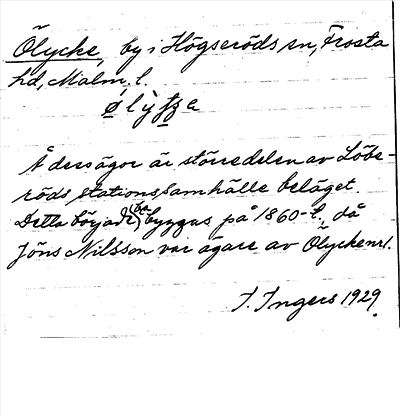 Ölycke, by i Högseröds sn, Frosta
hd, Malm. l.
ø l ỳ tʒ e
Å dess ägor är större delen av Löbe-
röds stationssamhälle beläget.
Detta började (bra) byggas på 1860-t. då
Jöns Nilsson var ägare av Ölycke nr 1.
I. Ingers 1929.